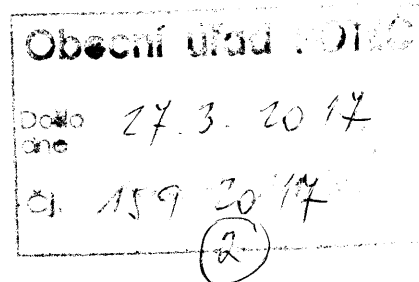 Obecní úřad
Došlo
dne 27. 3. 2017
čj. 159 2017
2